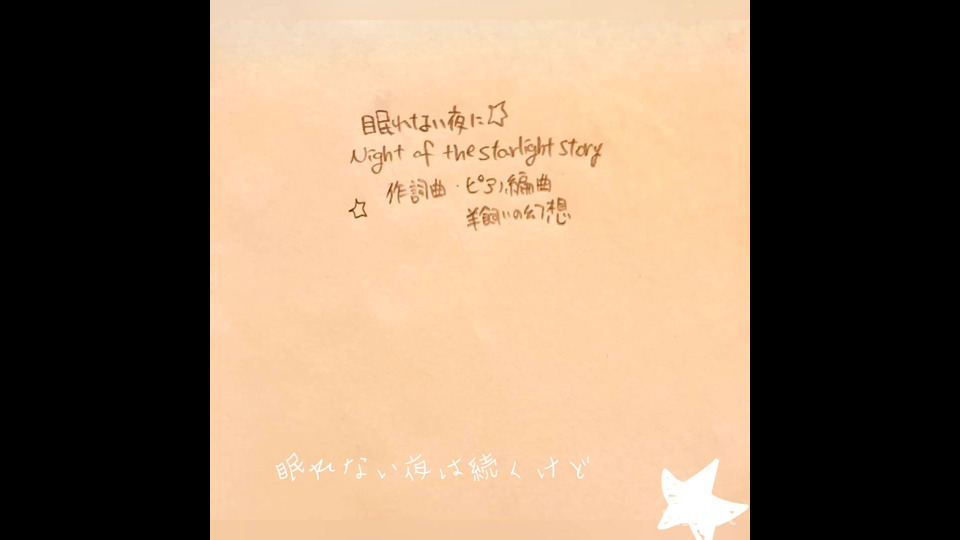 眠れない夜に☆
Night of the starlight story
作詞曲・ピアノ編曲
羊飼いの幻想
眠れない夜は続くけど